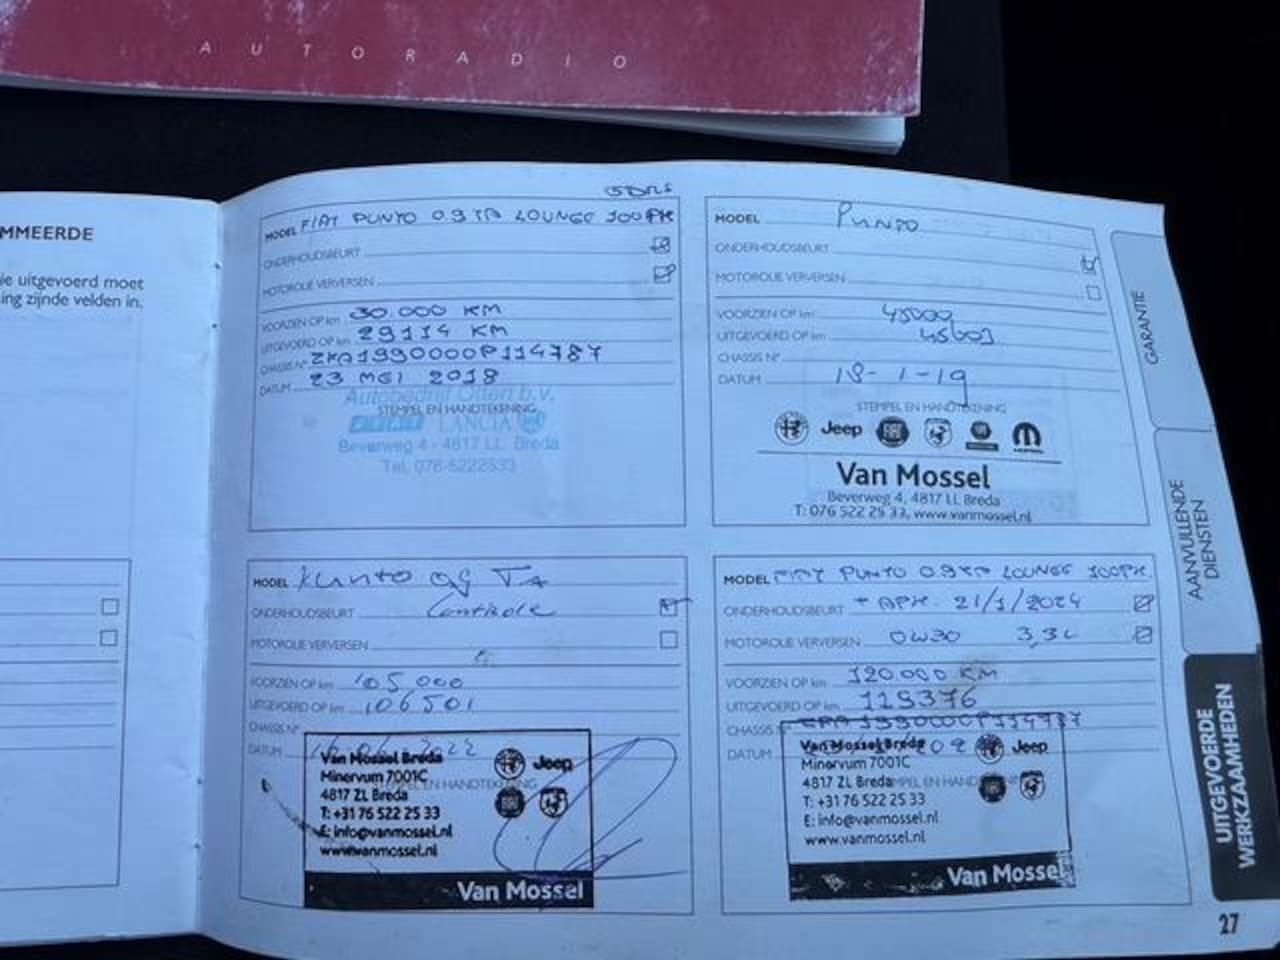 AUTORADIO
MMEERDE
ie uitgevoerd moet
ing zijnde velden in.
5DRS
MODEL FIAT PUNTO 0.9 TA LOUNGE 100PK
ONDERHOUDSBEURT
MOTOROLIE VERVERSEN
VOORZIEN OP km 30.000 KM
UITGEVOERD OP km 29114 KM
CHASSIS N° ZFA1990000P114787
DATUM 23 MEI 2018
Autobedrijf Olten b.v.
STEMPEL EN HANDTEKENING
FIAT LANCIA
Beverweg 4 - 4817 LL Breda
Tel. 076-5222533
MODEL PUNTO
ONDERHOUDSBEURT
MOTOROLIE VERVERSEN
VOORZIEN OP km 45000
UITGEVOERD OP km 45603
CHASSIS N°
DATUM 18-1-19
STEMPEL EN HANDTEKENING
Jeep
Van Mossel
Beverweg 4, 4817 LL Breda
T: 076 522 25 33, www.vanmossel.nl
MODEL Punto 09 TA
ONDERHOUDSBEURT Controle
MOTOROLIE VERVERSEN
VOORZIEN OP km 105000
UITGEVOERD OP km 106501
CHASSIS N°
DATUM 2022
Van Mossel Breda
Jeep
Minervum 7001C
STEMPEL EN HANDTEKENING
4817 ZL Breda
T: +31 76 522 25 33
E: info@vanmossel.nl
www.vanmossel.nl
Van Mossel
MODEL FIAT PUNTO 0.9 TA LOUNGE 100PK.
ONDERHOUDSBEURT + APK. 21/1/2024
MOTOROLIE VERVERSEN 0W30 3,3L
VOORZIEN OP km 120.000 KM
UITGEVOERD OP km 119376
CHASSIS ZFA1990000P114787
DATUM
Van Mossel Breda
Jeep
Minervum 7001C
4817 ZL Breda
T: +31 76 522 25 33
E: info@vanmossel.nl
www.vanmossel.nl
Van Mossel
GARANTIE
AANVULLENDE
DIENSTEN
UITGEVOERDE
WERKZAAMHEDEN
27